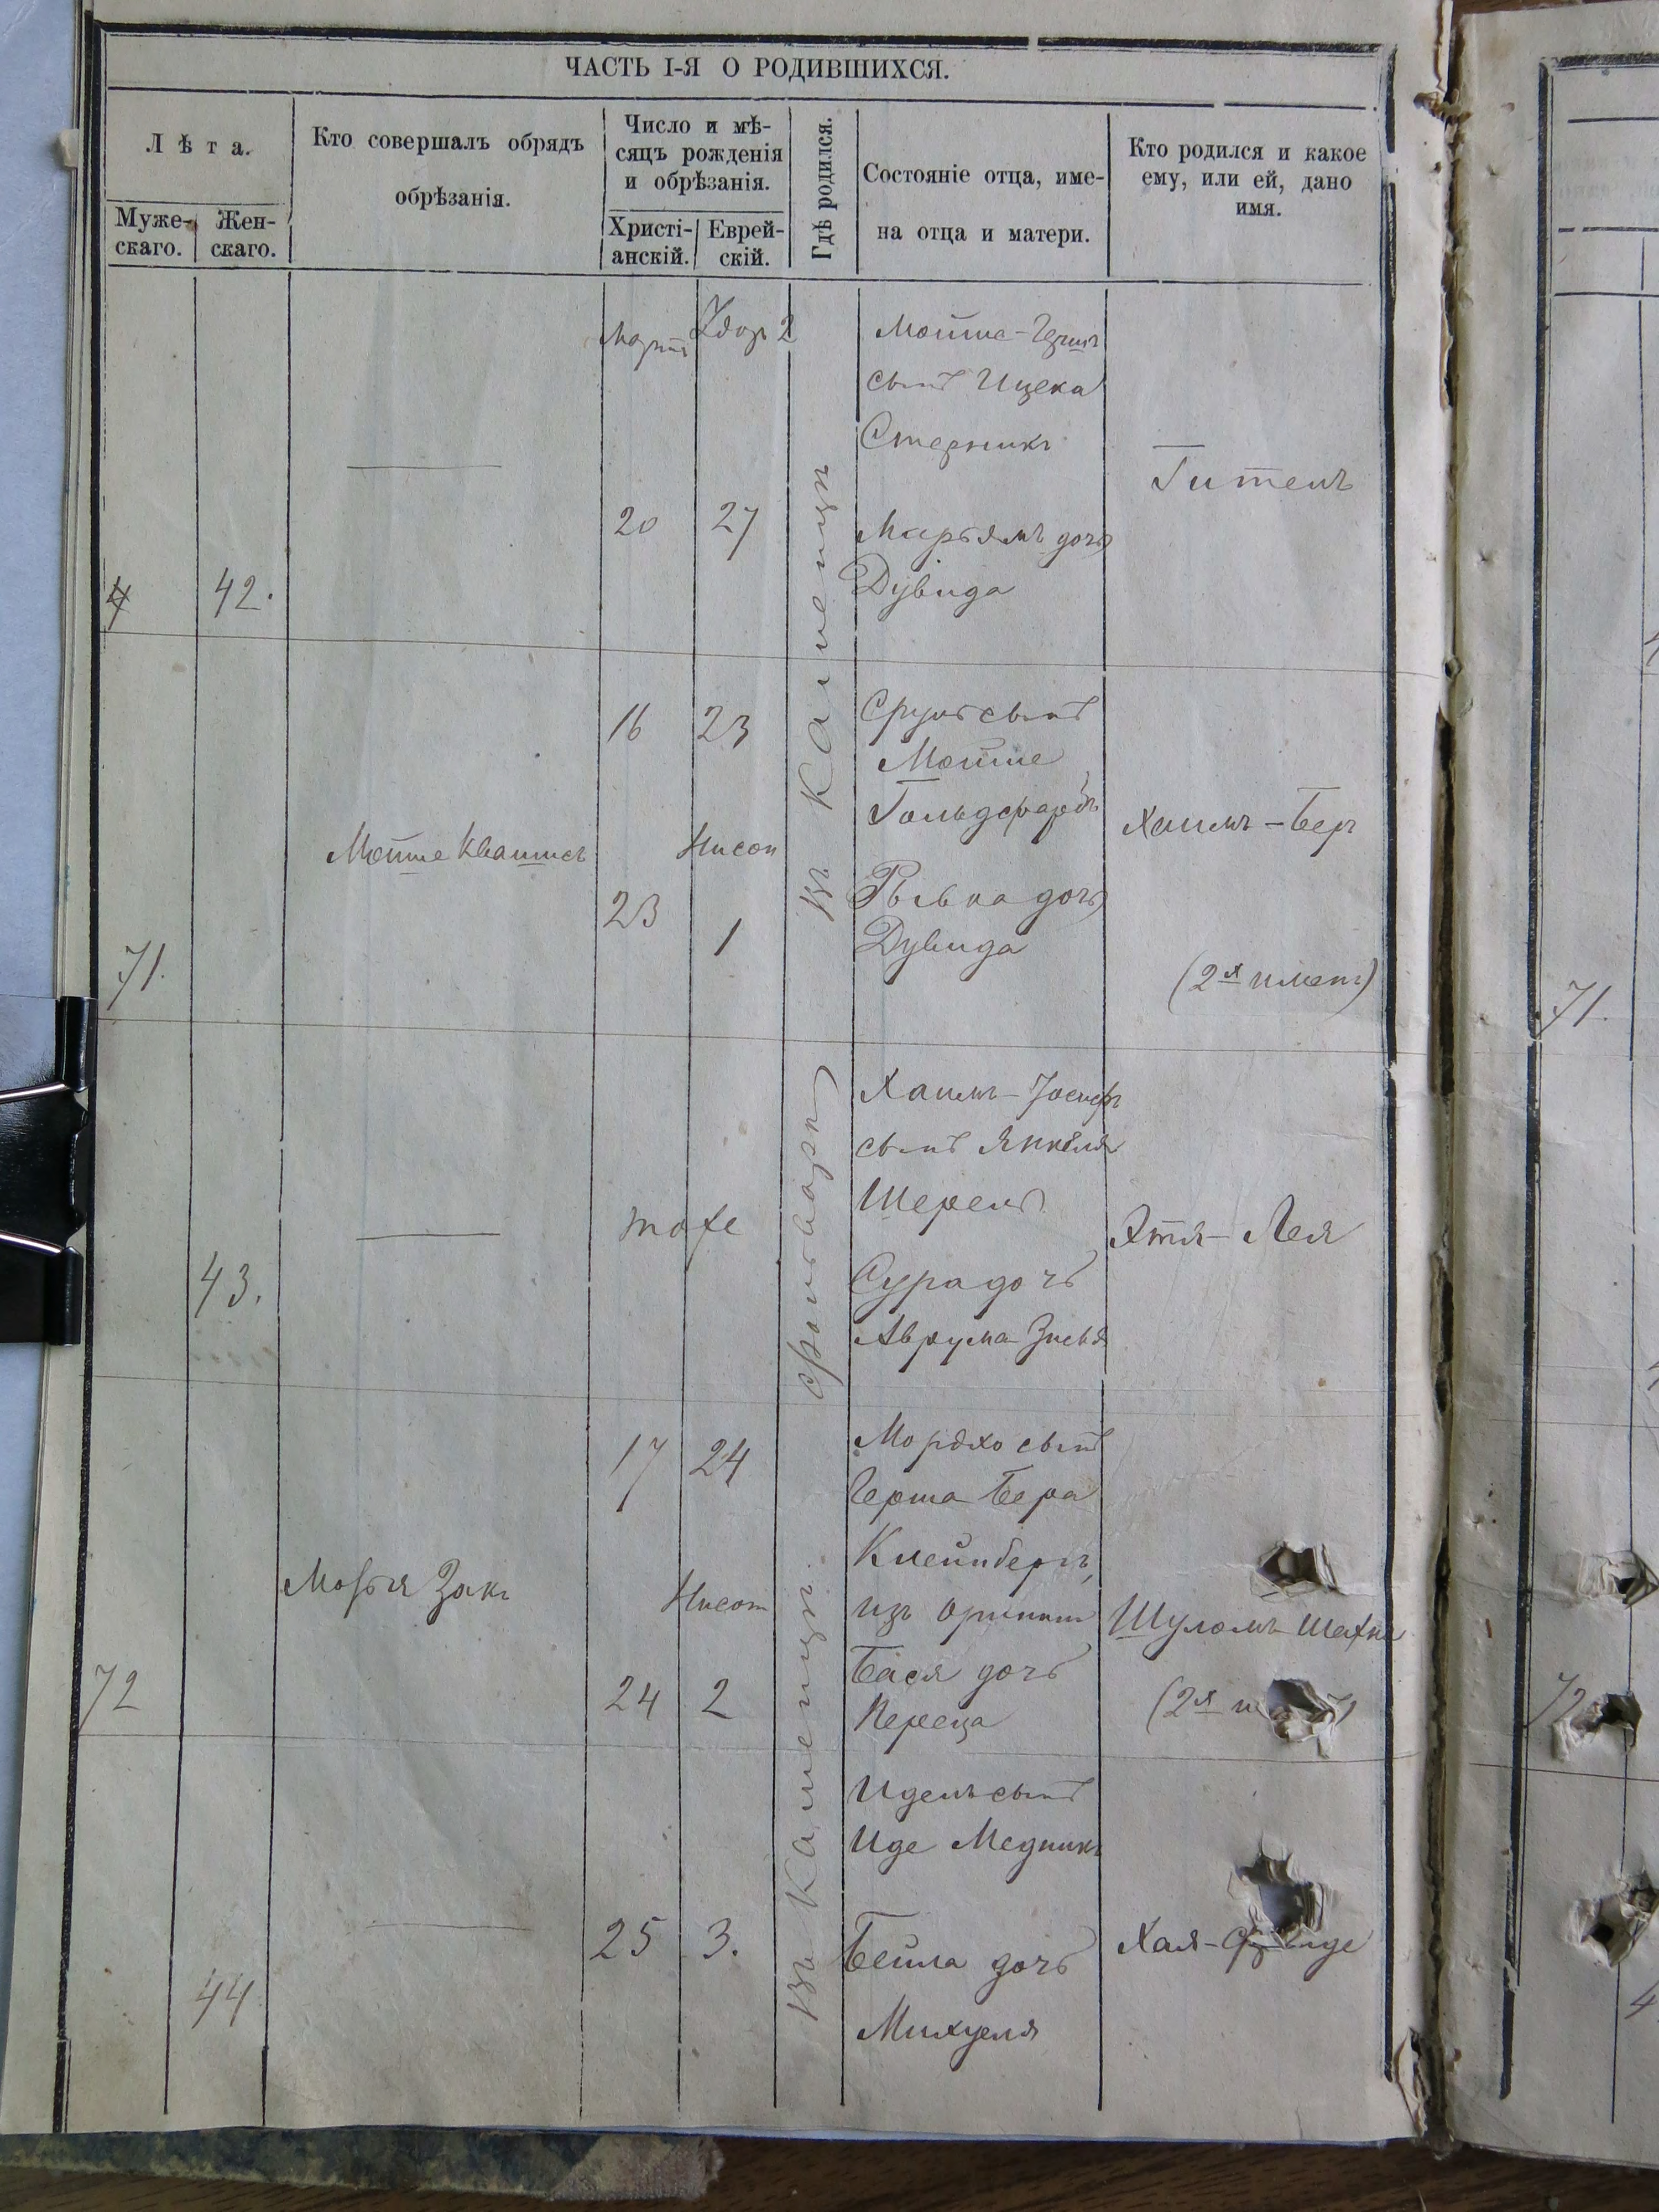 ЧАСТЬ I-Я О РОДИВШИХСЯ.
Лѣта.
Муже-
скаго.
Жен-
скаго.
Кто совершалъ обрядъ
обрѣзанія.
Число и мѣ-
сяцъ рожденія
и обрѣзанія.
Христі-
анскій.
Еврей-
скій.
Гдѣ родился.
Состояніе отца, име-
на отца и матери.
Кто родился и какое
ему, или ей, дано
имя.
42.
Мартъ
20
Адар 2
27
въ Каменцѣ
Мойше-Герш
сынъ Ицека
Стерникъ
Марьямъ дочь
Дувида
Гитель
71.
Мойше Квашис
16
23
23
Нисон
1
Срулъ сынъ
Мойше
Гольдфарбъ
Рывка дочь
Дувида
Хаимъ-Беръ
(2я имен)
43.
тоже
фольварку
Хаимъ-Іосифъ
сынъ Янкеля
Шерель
Сура дочь
Аврума
Этя-Лея
72
Закъ
17
24
24
Нисон
2
въ Каменцѣ.
Мордко сынъ
Герша Бера
Клейнбергъ,
изъ
Бася дочь
Переца
Шуломъ-Шахна
(2я
44
25
3.
Идель сынъ
Иде Медникъ
Бейла дочь
Михуеля
Хая-
71.
72